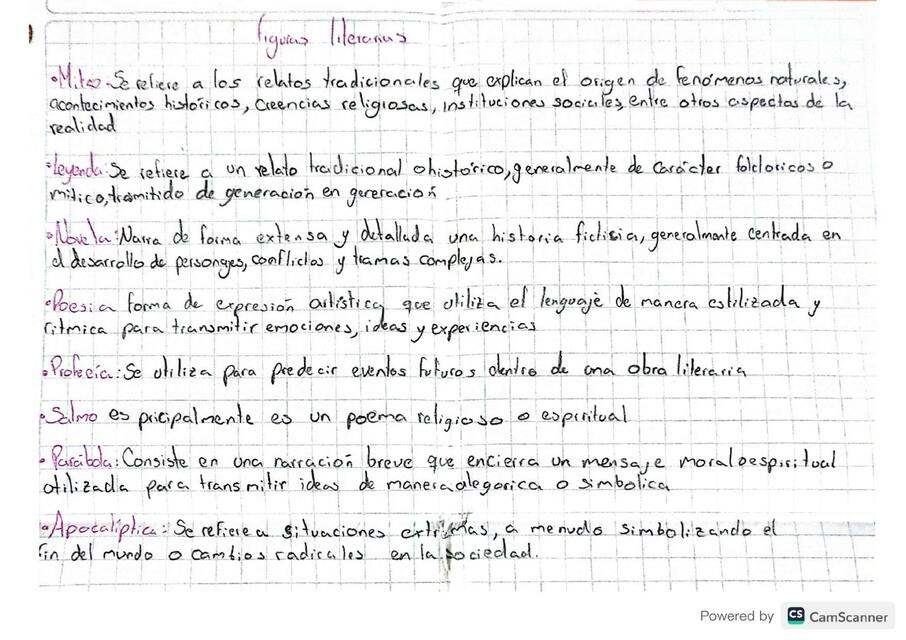 figuras literarias
•Mitos-Se refiere a los relatos tradicionales que explican el origen de fenómenos naturales,
acontecimientos históricos, Creencias religiosas, instituciones sociales, entre otros aspectos de la
realidad
•leyenda: Se refiere a un relato tradicional o historico, generalmente de carácter folcloricos o
mitico, tramitido de generacion en gereracion
•Novela: Narra de forma extensa y detallada una historia fictisia, generalmante centrada en
el desarrollo de personges, conflictos y tramas complejas.
•Poesia forma de expresión artistica que utiliza el lenguaje de manera estilizada y
ritmica para transmitir emociones, ideas y experiencias
•Profecía: Se utiliza para predecir eventos futuros dentro de una obra literaria
•Salmo es pricipalmente es un poema religioso o espiritual
•Parábola: Consiste en una narración breve que encierra un mensaje moral o espiritual
utilizada para transmitir ideas de manera alegorica o simbolica
•Apocalíptica: Se refiere a situaciones extrimas, a menudo simbolizando el
fin del mundo o cambios radicales en la sociedad.
Powered by CS CamScanner